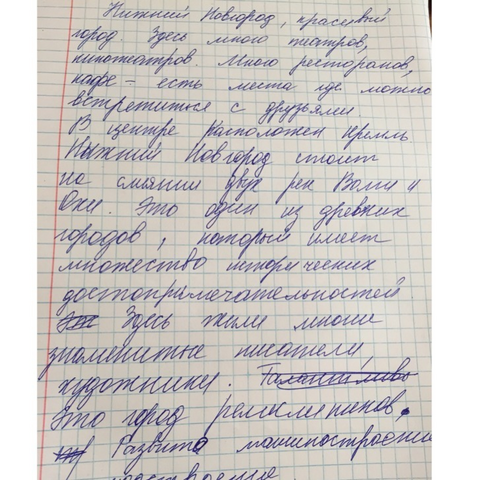 Нижний Новгород, красивый
город Здесь много театров,
кинотеатров. Много ресторанов,
кафе – есть места где можно
встретиться с друзьями.
В центре расположен кремль.
Нижний Новгород стоит
на слиянии двух рек Волги и
Оки. Это один из древних
городов, который имеет
множество исторических
достопримечательностей
Здесь жили многие
знаменитые писатели,
художники. Талантливо
Это город ремесленников.
Развито машиностроение